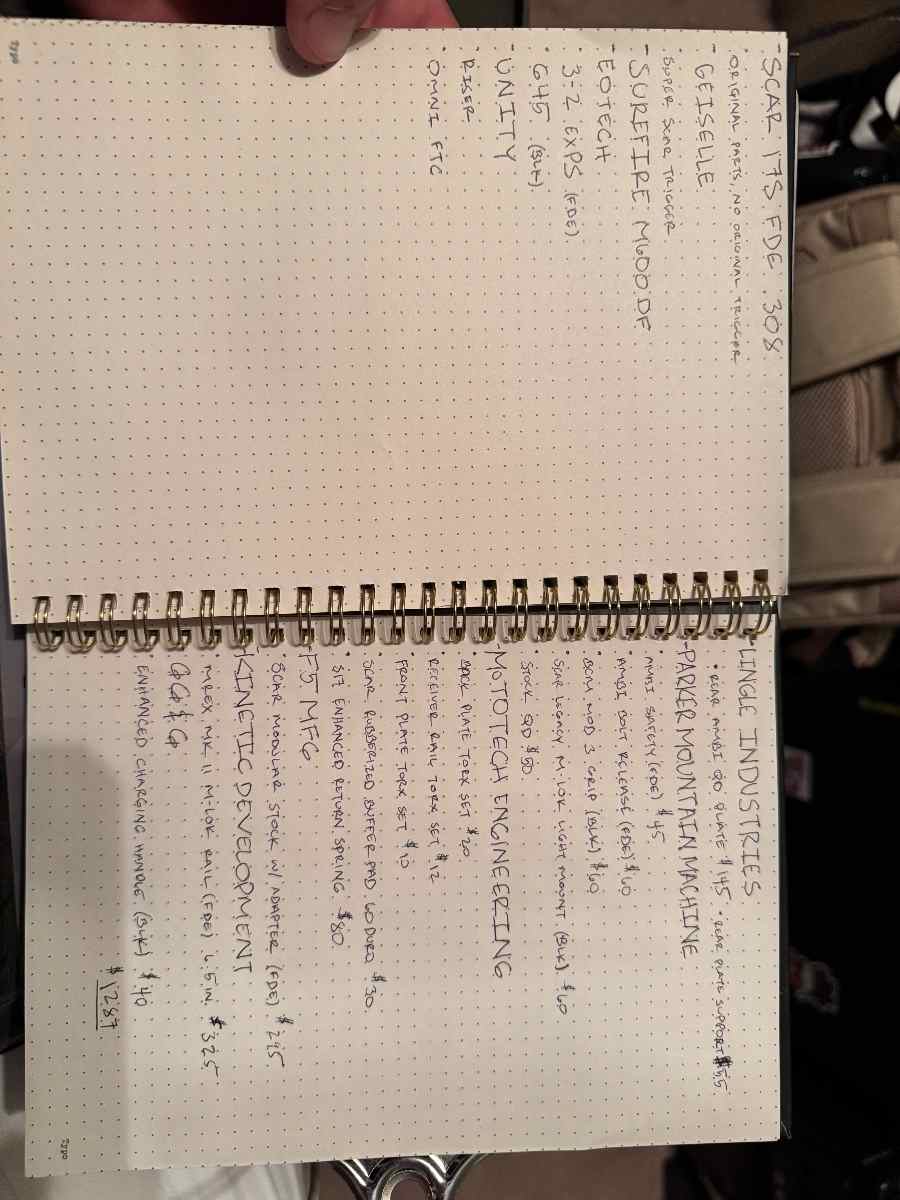 - SCAR 17S FDE .308
• ORIGINAL PARTS, NO ORIGINAL TRIGGER
- GEISELLE
• SUPER SCAR TRIGGER
- SUREFIRE M600DF
- EOTECH
• 3-2 EXPS (FDE)
• G45 (BLK)
- UNITY
• RISER
• OMNI FTC
- LINGLE INDUSTRIES
• REAR AMBI QD PLATE $145 • REAR PLATE SUPPORT $55
- PARKER MOUNTAIN MACHINE
• AMBI SAFETY (FDE) $45
• AMBI BOLT RELEASE (FDE) $60
• BCM MOD 3 GRIP (BLK) $60
• SCAR LEGACY M-LOK LIGHT MOUNT (BLK) $60
• STOCK QD $50
- MOTOTECH ENGINEERING
• BACK PLATE TORX SET $20
• RECEIVER RAIL TORX SET $12
• FRONT PLATE TORX SET $10
• SCAR RUBBERIZED BUFFER PAD 60 DURO $30
• S17 ENHANCED RETURN SPRING $80
- F5 MFG
• SCAR MODULAR STOCK W/ ADAPTER (FDE) $295
- KINETIC DEVELOPMENT
• MREX MK II M-LOK RAIL (FDE) 6.5 IN $325
- GG&G
• ENHANCED CHARGING HANDLE (BLK) $40
$1287